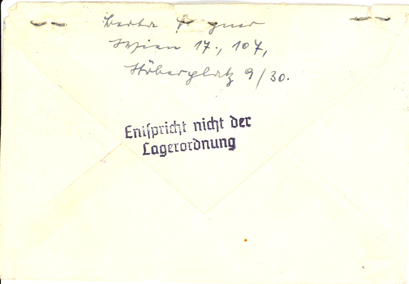 Berta
Wien 17., 107,
9/30.
Entspricht nicht der
Lagerordnung